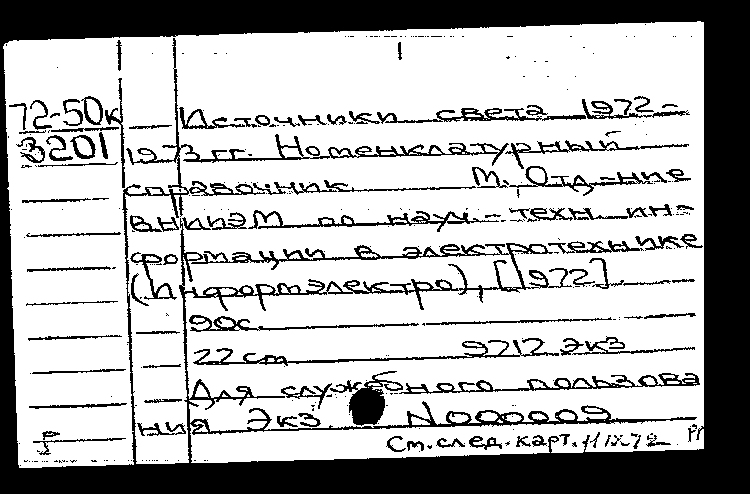 72-50к
3201
Источники света 1972-
1973 гг. Номенклатурный
справочник М., Отд-ние
ВНИИЭМ по науч.-техн. ин-
формации в электротехнике
(Информэлектро), [1972].
90с.
22 cm 9712 экз
Для служебного пользова
ния Экз. N000009
См. след. карт. 11 IX 72